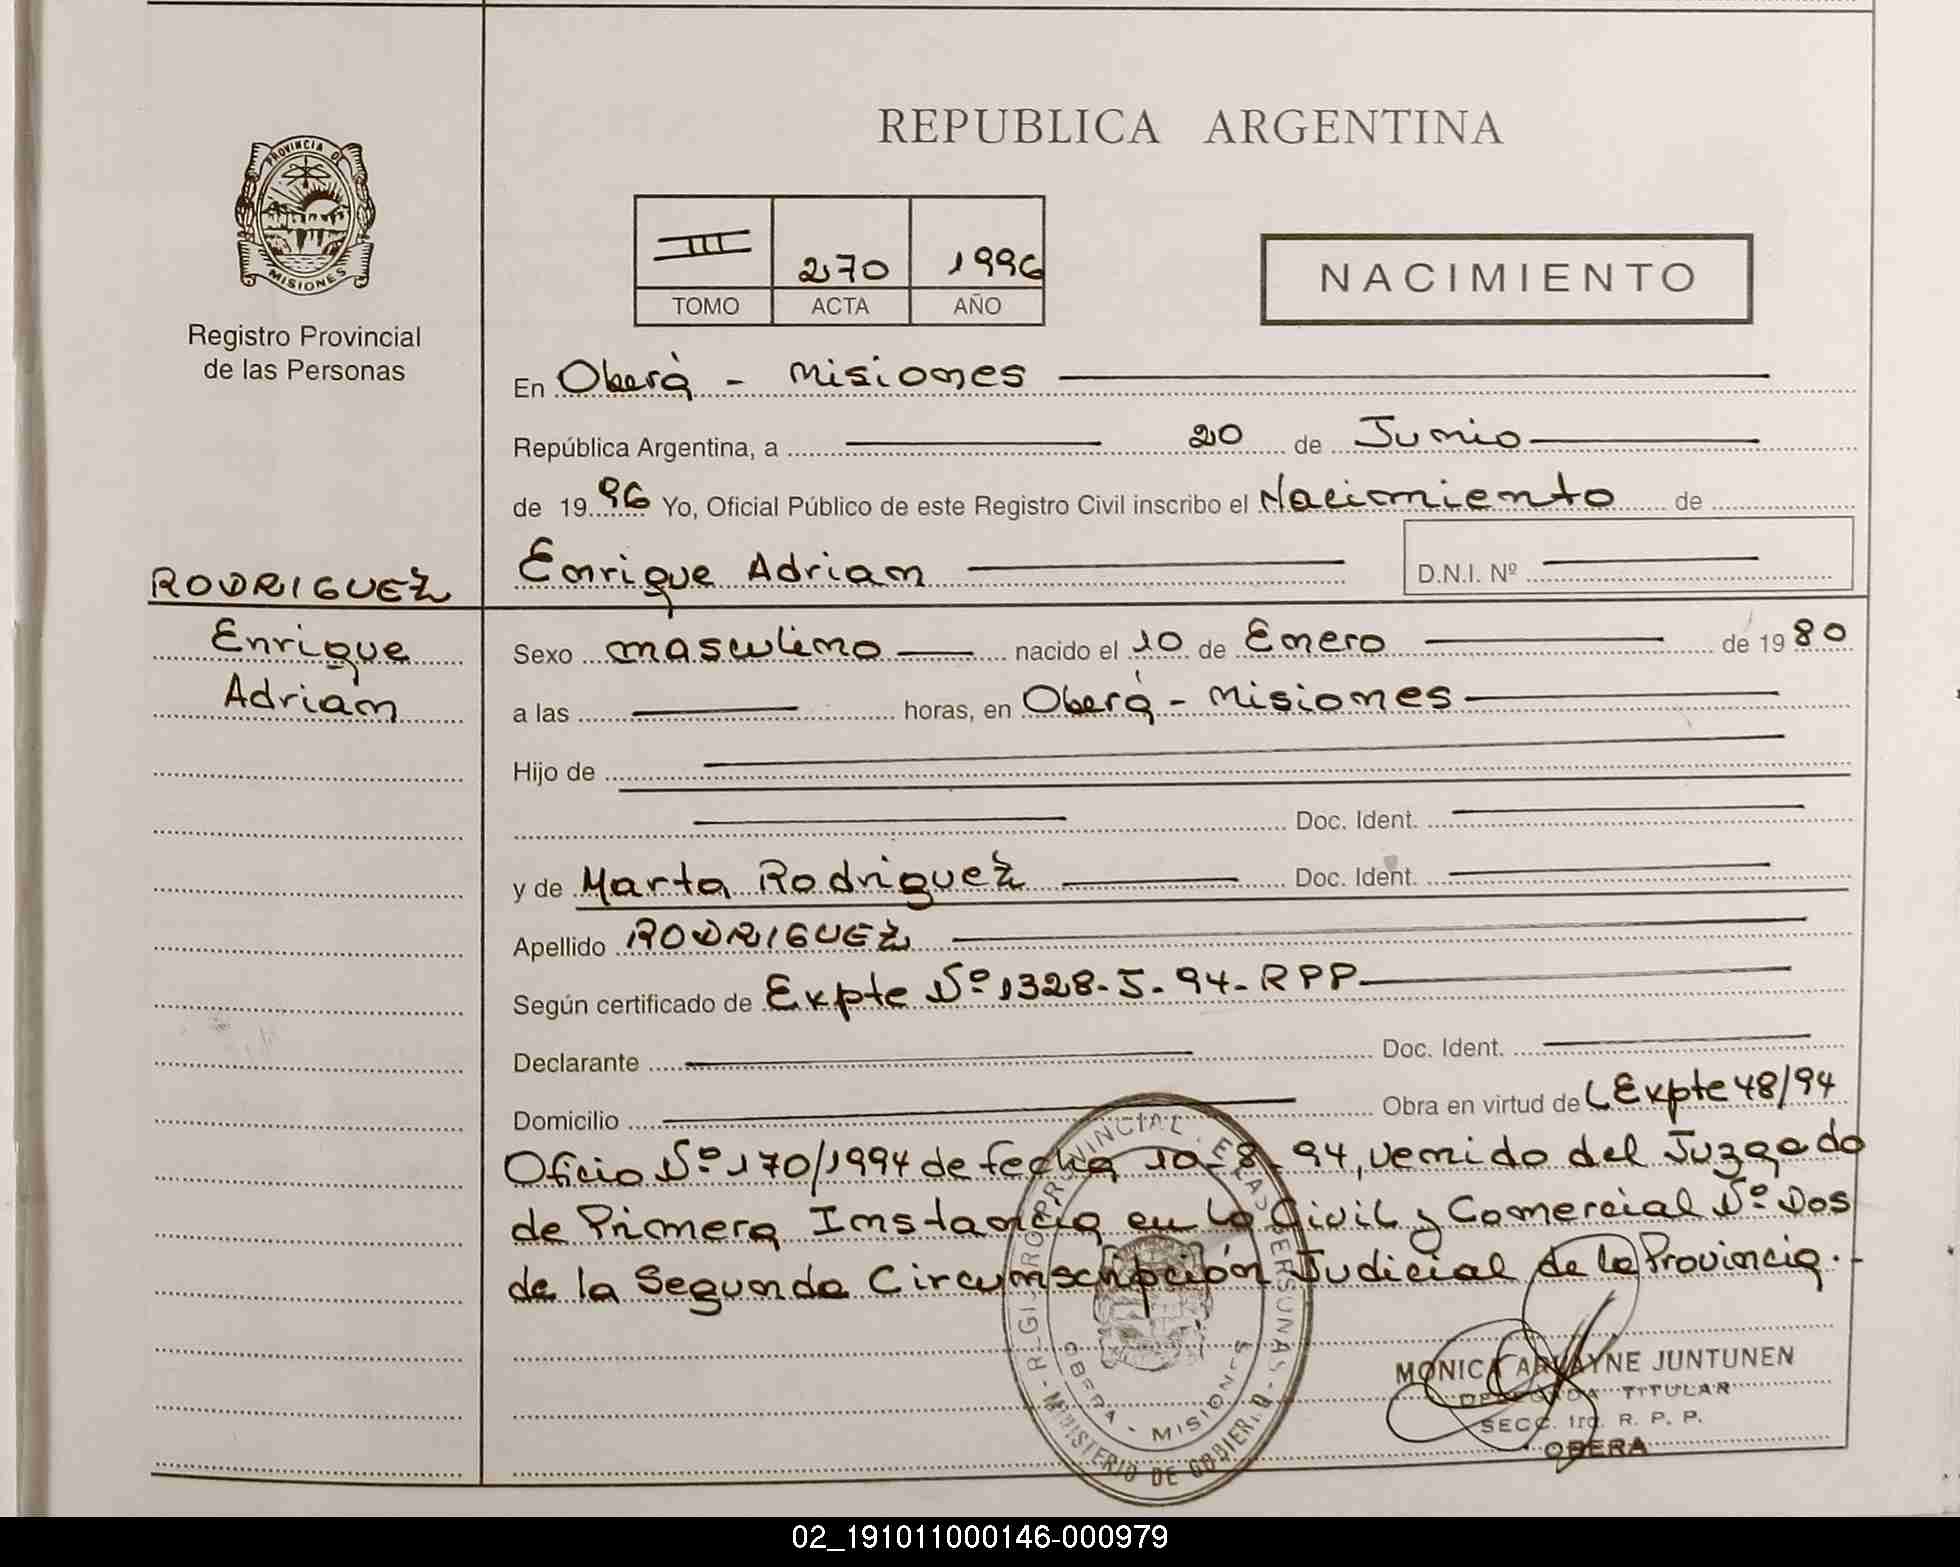 REPUBLICA ARGENTINA
PROVINCIA DE
MISIONES
Registro Provincial
de las Personas
III 270 1996
TOMO ACTA AÑO
NACIMIENTO
En Oberá - Misiones
República Argentina, a 20 de Junio
de 1996 Yo, Oficial Público de este Registro Civil inscribo el Nacimiento de
Enrique Adrian D.N.I. Nº
RODRIGUEZ
Enrique
Adrian
Sexo masculino nacido el 10 de Enero de 1980
a las horas, en Oberá - Misiones
Hijo de
Doc. Ident.
y de Marta Rodriguez Doc. Ident.
Apellido RODRIGUEZ
Según certificado de Expte Nº 1328-5-94-RPP
Declarante Doc. Ident.
Domicilio Obra en virtud del Expte 48/94
Oficio Nº 170/1994 de fecha 10-8-94, venido del Juzgado
de Primera Instancia en lo Civil y Comercial Nº Dos
de la Segunda Circunscripción Judicial de la Provincia.-
OBERA - MISIONES
MINISTERIO DE GOBIERNO
MONICA JUNTUNEN
DELEGADA TITULAR
SECC. 1ra. R. P. P.
OBERA
02_191011000146-000979